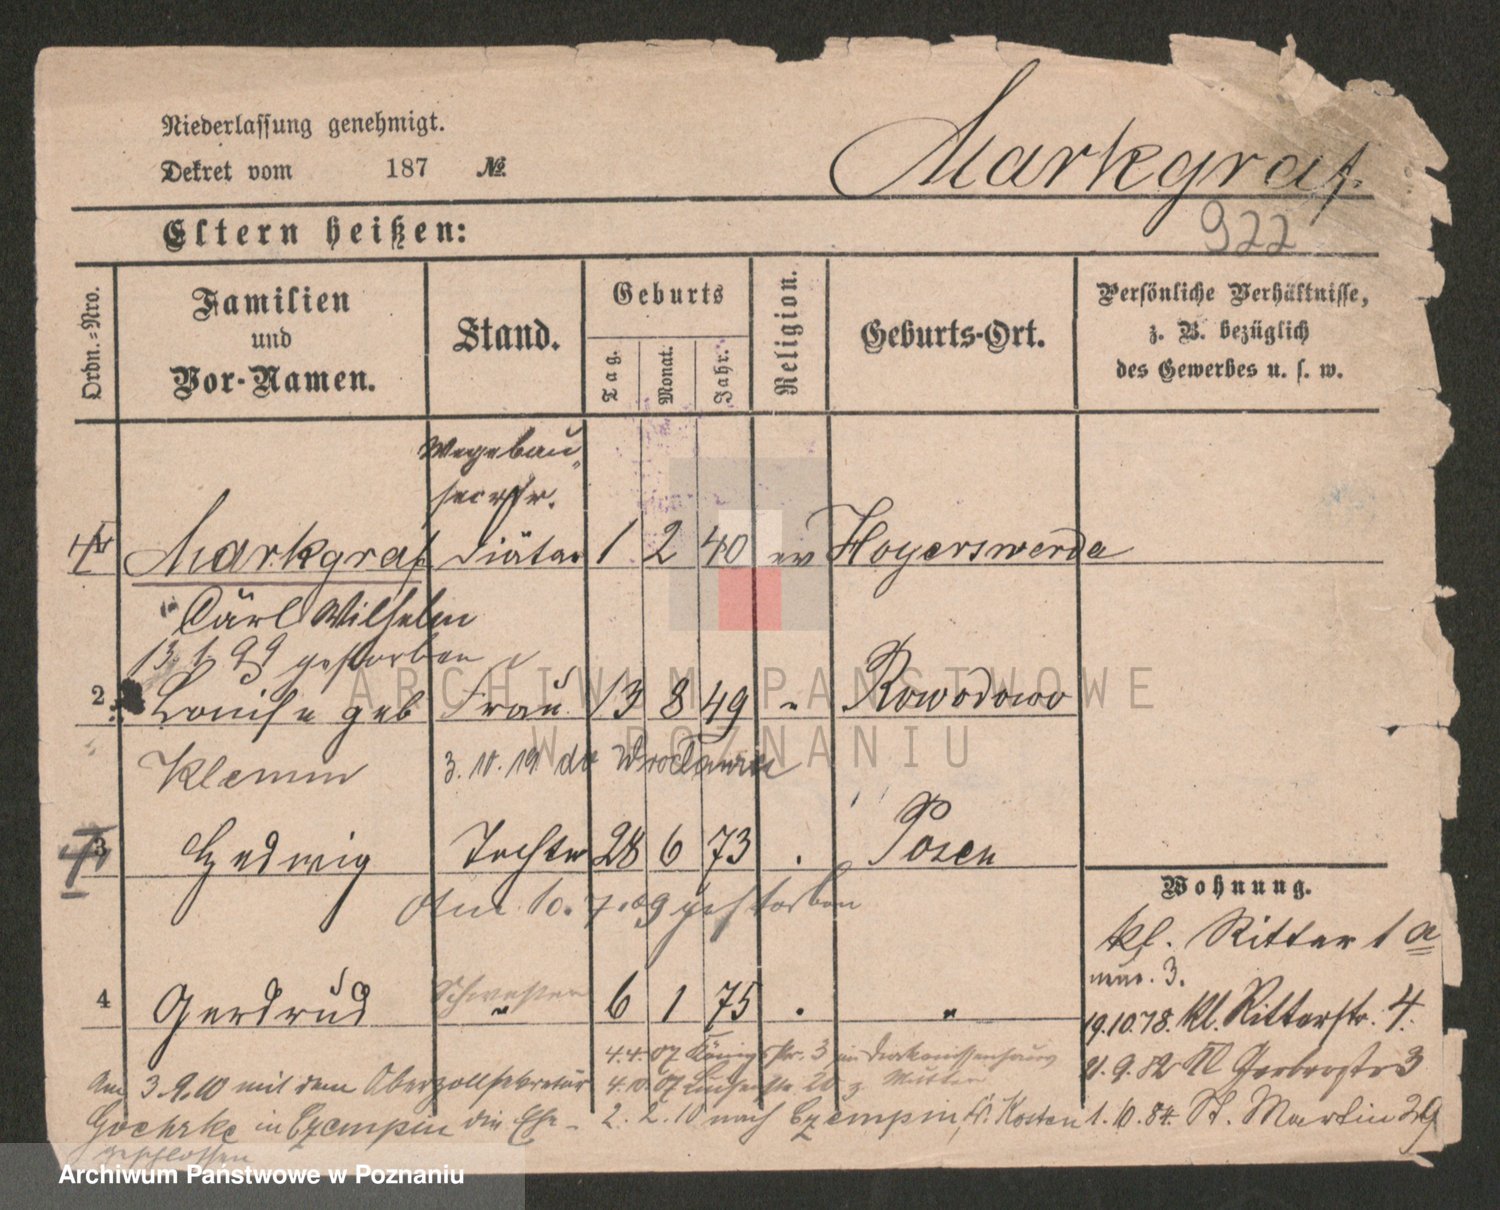 Niederlassung genehmigt.
Dekret vom 187 №
Markgraf.
922
Eltern heißen:
Ordn.-Nro.
Familien und Vor-Namen.
Stand.
Geburts
Tag. Monat. Jahr.
Religion.
Geburts-Ort.
Persönliche Verhältnisse,
z. B. bezüglich
des Gewerbes u. s. w.
Wegebau-
secretr.
Markgraf Diätar 1 2 40 ev Hoyerswerda
Carl Wilhelm
13. 1. 99 gestorben
2 Louise geb Frau 13 8 49 " Rowodowo
Klemm 3. 10. 19 do Wrocławia
3 Hedwig Tochter 28 6 73 . Posen
Am 10. 7. 09 gestorben
Wohnung.
kl. Ritter 1 a
4 Gerdrud Schwester " 6 1 75 . "
nur. 3.
19.10.78. kl. Ritterstr. 4.
4.4.07 Königstr. 3 im Diakonissenhaus
21.9.82 Kl Gerberstr 3
4.10.07 Luisenstr. 20 z. Mutter
2. 2. 10 nach Czempin, Kr. Kosten
1. 10. 84. St. Martin 29
Am 3.9.10 mit dem Oberzollsekretär
Goehrke in Czempin die Ehe-
geschlossen
ARCHIWUM PAŃSTWOWE
W POZNANIU
Archiwum Państwowe w Poznaniu